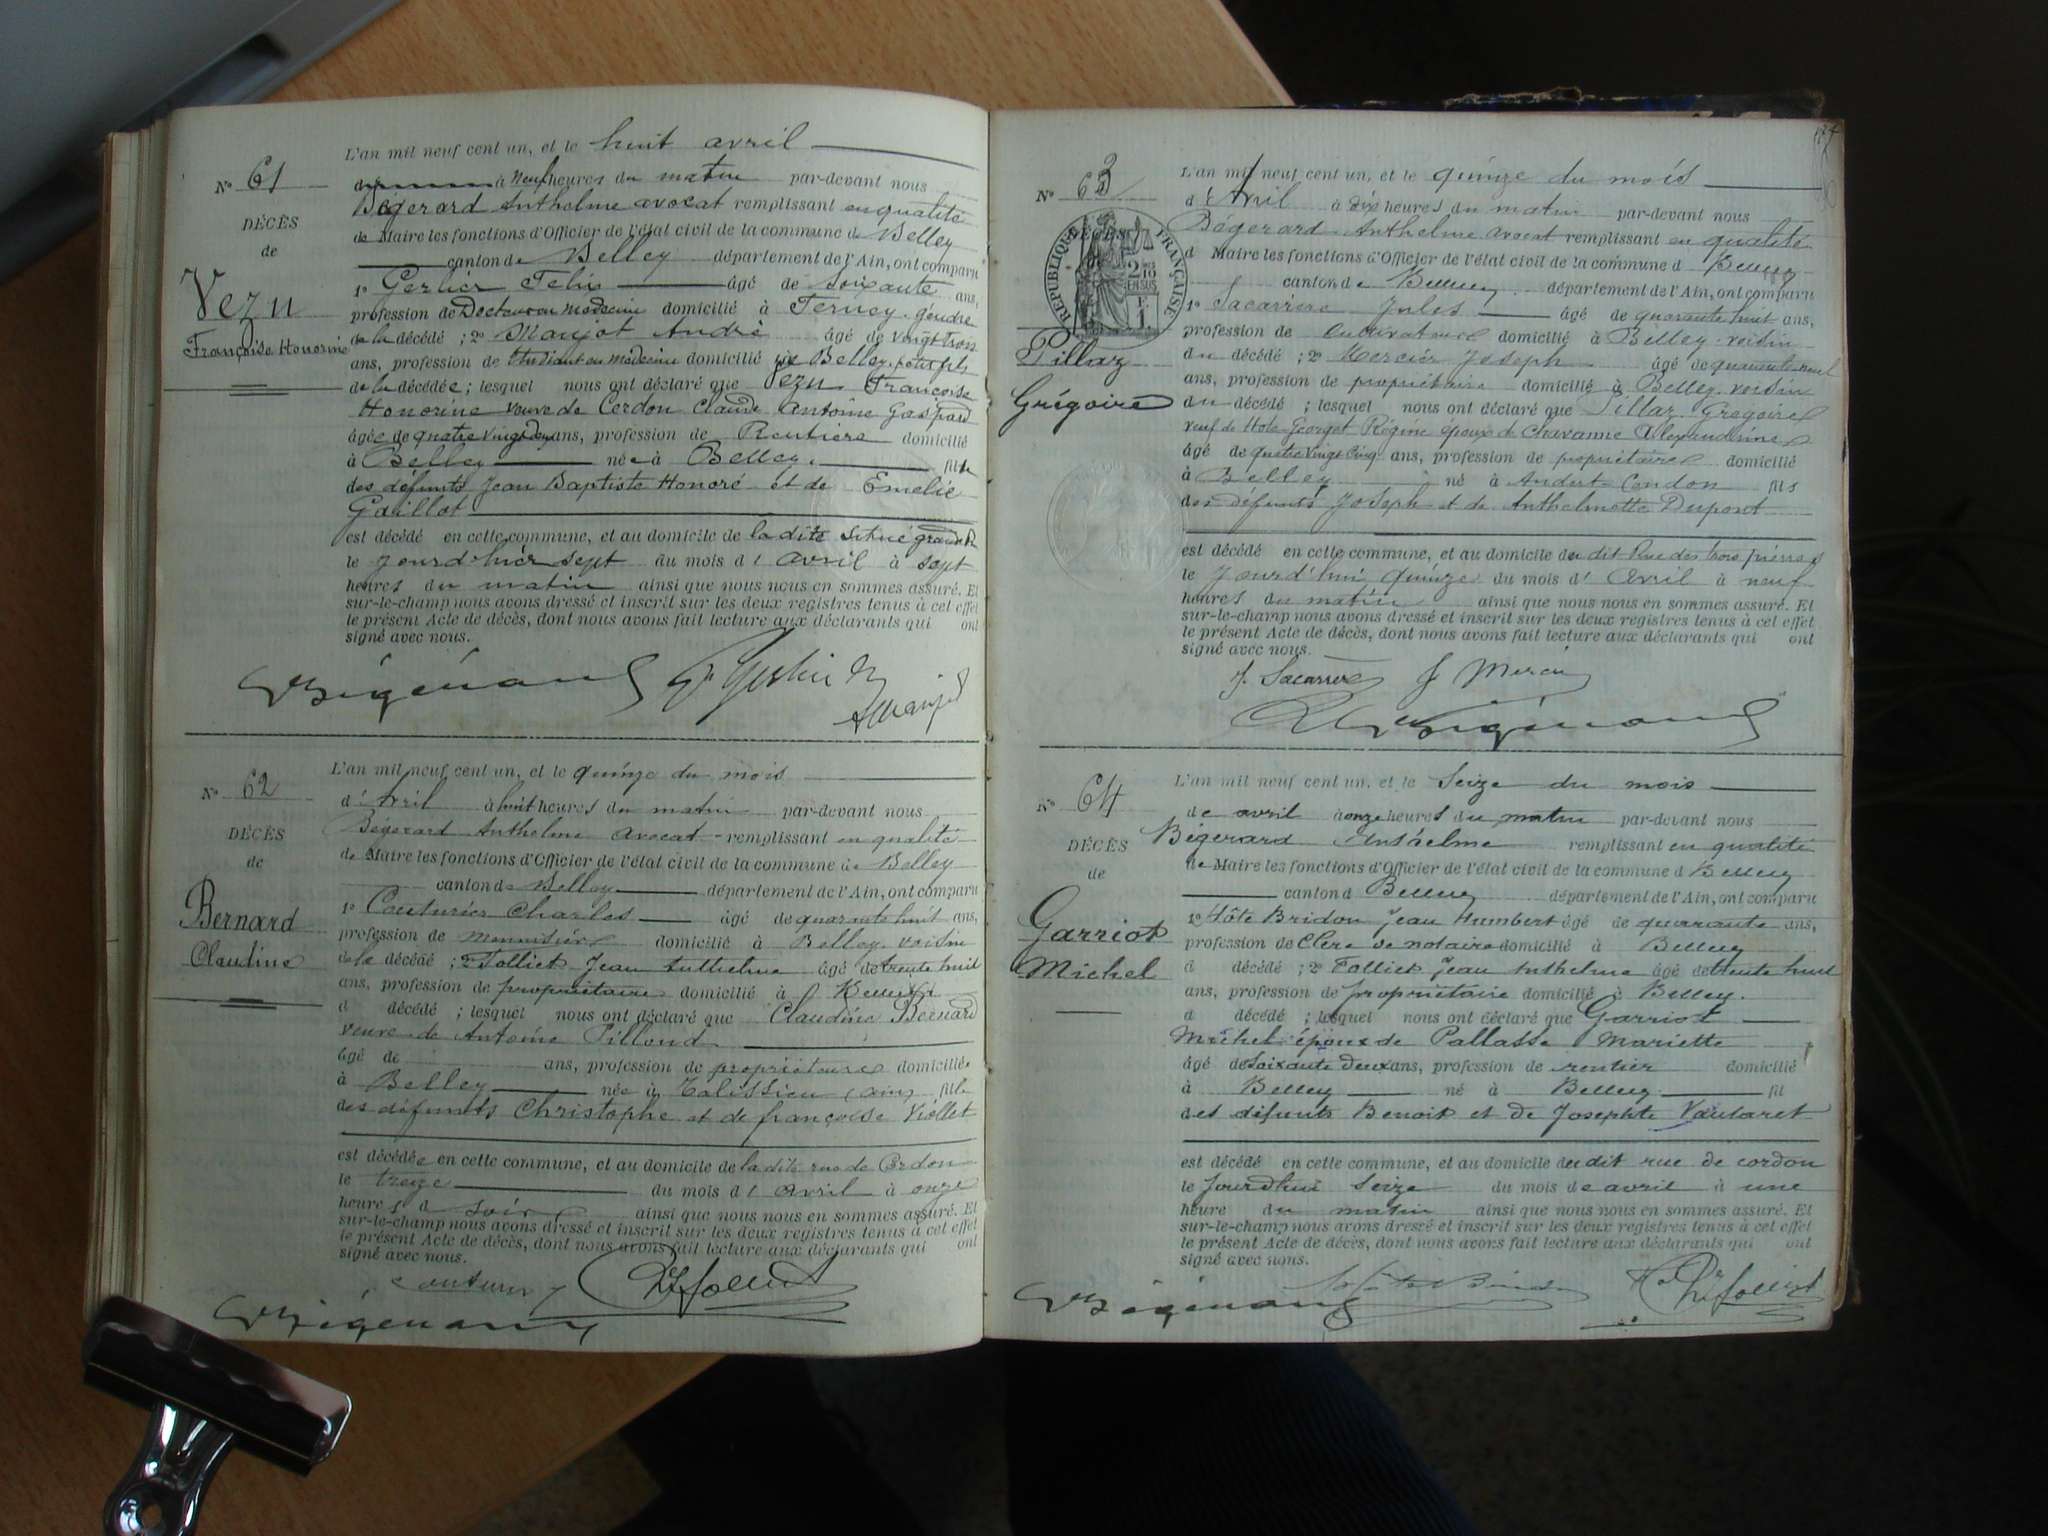 L'an mil neuf cent un, et le huit avril
N° 61
à neuf heures du matin par-devant nous
DÉCÈS
Bégerard Anthelme avocat remplissant en qualité
de
de Maire les fonctions d'Officier de l'état civil de la commune de Belley
canton de Belley département de l'Ain, ont comparu
Vezu
Françoise Honorine
1° Gerlier Félix âgé de soixante ans,
profession de Docteur en médecine domicilié à Ferney, gendre
de la décédé ; 2° Maujot André âgé de vingt trois
ans, profession de Etudiant en médecine domicilié à Belley, petit fils
de la décédée ; lesquel nous ont déclaré que Vezu Françoise
Honorine veuve de Cerdon Claude Antoine Gaspard
âgée de quatre vingt deux ans, profession de Rentière domicilié
à Belley née à Belley. fille
des défunts Jean Baptiste Honoré et de Emelie
Gaillot
est décédé en cette commune, et au domicile de la dite situé grande R
le jourd'hier sept du mois d'avril à sept
heures du matin ainsi que nous nous en sommes assuré. Et
sur-le-champ nous avons dressé et inscrit sur les deux registres tenus à cet effet
le présent Acte de décès, dont nous avons fait lecture aux déclarants qui ont
signé avec nous.
L'an mil neuf cent un, et le quinze du mois
N° 62
d'Avril à huit heures du matin par-devant nous
DÉCÈS
Bégerard Anthelme avocat remplissant en qualité
de
de Maire les fonctions d'Officier de l'état civil de la commune de Belley
canton de Belley département de l'Ain, ont comparu
Bernard
Claudine
1° Couturier Charles âgé de quarante huit ans,
profession de menuisier domicilié à Belley, voisin
de la décédé ; 2° Folliet Jean Anthelme âgé de trente huit
ans, profession de propriétaire domicilié à Belley
d décédé ; lesquel nous ont déclaré que Claudine Bernard
veuve de Antoine Pilloud
âgé de ans, profession de propriétaire domiciliée
à Belley née à Talissieu (ain) fille
des défunts Christophe et de françoise Viollet
est décédée en cette commune, et au domicile de la dite rue de Cordon
le treize du mois d'avril à onze
heures d soir ainsi que nous nous en sommes assuré. Et
sur-le-champ nous avons dressé et inscrit sur les deux registres tenus à cet effet
le présent Acte de décès, dont nous avons fait lecture aux déclarants qui ont
signé avec nous.
L'an mil neuf cent un, et le quinze du mois
N° 63
d'Avril à dix heures du matin par-devant nous
DÉCÈS
RÉPUBLIQUE FRANÇAISE
Bégerard Anthelme avocat remplissant en qualité
d Maire les fonctions d'Officier de l'état civil de la commune d Belley
canton de Belley département de l'Ain, ont comparu
Pillaz
Grégoire
1° Sacarrère Jules âgé de quarante huit ans,
profession de cultivateur domicilié à Belley voisin
du décédé ; 2° Mercier Joseph âgé de quarante neuf
ans, profession de propriétaire domicilié à Belley voisin
du décédé ; lesquel nous ont déclaré que Pillaz Grégoire
veuf de Hote Georget Régine époux de Chavanne Alexandrine
âgé de quatre vingt cinq ans, profession de propriétaire domicilié
à Belley né à Andert-Condon fils
des défunts Joseph et de Anthelmette Dupont
est décédé en cette commune, et au domicile du dit Rue des trois pierres
le jourd'hui quinze du mois d'avril à neuf
heures du matin ainsi que nous nous en sommes assuré. Et
sur-le-champ nous avons dressé et inscrit sur les deux registres tenus à cet effet
le présent Acte de décès, dont nous avons fait lecture aux déclarants qui ont
signé avec nous.
J. Sacarrère
L'an mil neuf cent un, et le Seize du mois
N° 64
de avril à onze heures du matin par-devant nous
DÉCÈS
Bégerard Anthelme remplissant en qualité
de
de Maire les fonctions d'Officier de l'état civil de la commune d Belley
canton d Belley département de l'Ain, ont comparu
Garriot
Michel
1° Hôte Bridon Jean Humbert âgé de quarante ans,
profession de Clerc de notaire domicilié à Belley
d décédé ; 2° Folliet Jean Anthelme âgé de trente huit
ans, profession de propriétaire domicilié à Belley.
d décédé ; lesquel nous ont déclaré que Garriot
Michel époux de Pallasse Mariette
âgé de soixante deux ans, profession de rentier domicilié
à Belley né à Belley fil
des défunts Benoit et de Josephte Vautaret
est décédé en cette commune, et au domicile du dit rue de cordon
le jourdhui Seize du mois de avril à une
heure du matin ainsi que nous nous en sommes assuré. Et
sur-le-champ nous avons dressé et inscrit sur les deux registres tenus à cet effet
le présent Acte de décès, dont nous avons fait lecture aux déclarants qui ont
signé avec nous.